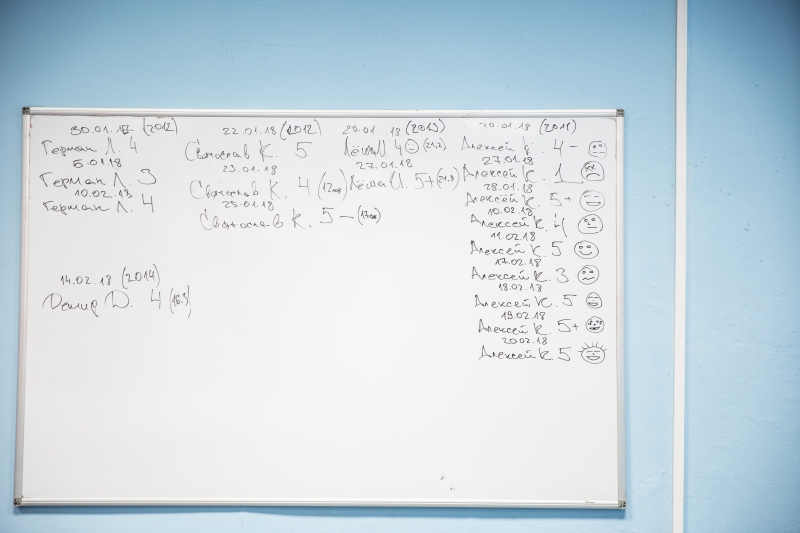 30.01.18 (2012)
Герман Л. 4
5.01.18
Герман Л. 3
10.02.18
Герман Л. 4
14.02.18 (2014)
Демир Д. 4 (16.9)
22.01.18 (2012)
Святослав К. 5
23.01.18
Святослав К. 4
25.01.18
Святослав К. 5 –
20.01.18 (2013)
Лёша И. 4 (21,2)
27.01.18
Лёша И. 5+ (21.9)
20.01.18 (2011)
Алексей К. 4 –
27.01.18
Алексей К. 1
28.01.18
Алексей К. 5+
10.02.18
Алексей К. 4
11.02.18
Алексей К. 5
17.02.18
Алексей К. 3
18.02.18
Алексей К. 5
19.02.18
Алексей К. 5+
20.02.18
Алексей К. 5